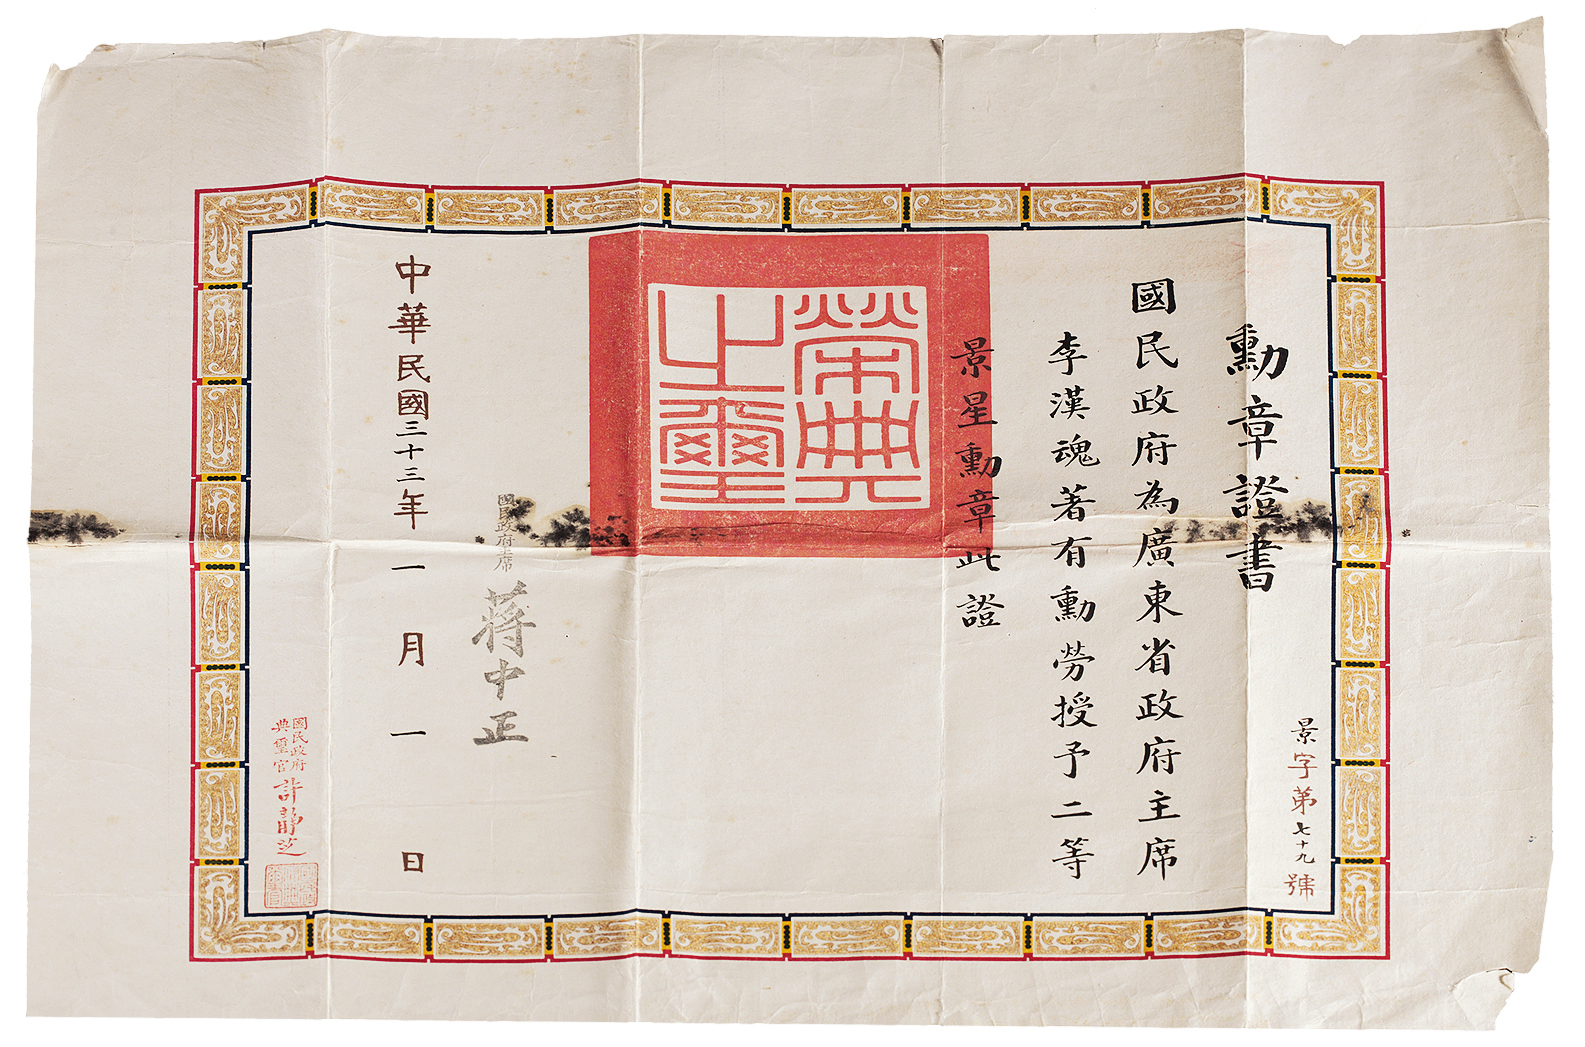 勳章證書
景字第七十九號
國民政府為廣東省政府主席
李漢魂著有勳勞授予二等
景星勳章此證
榮典之璽
國民政府主席
蔣中正
中華民國三十三年一月一日
國民政府
典璽官
許靜芝